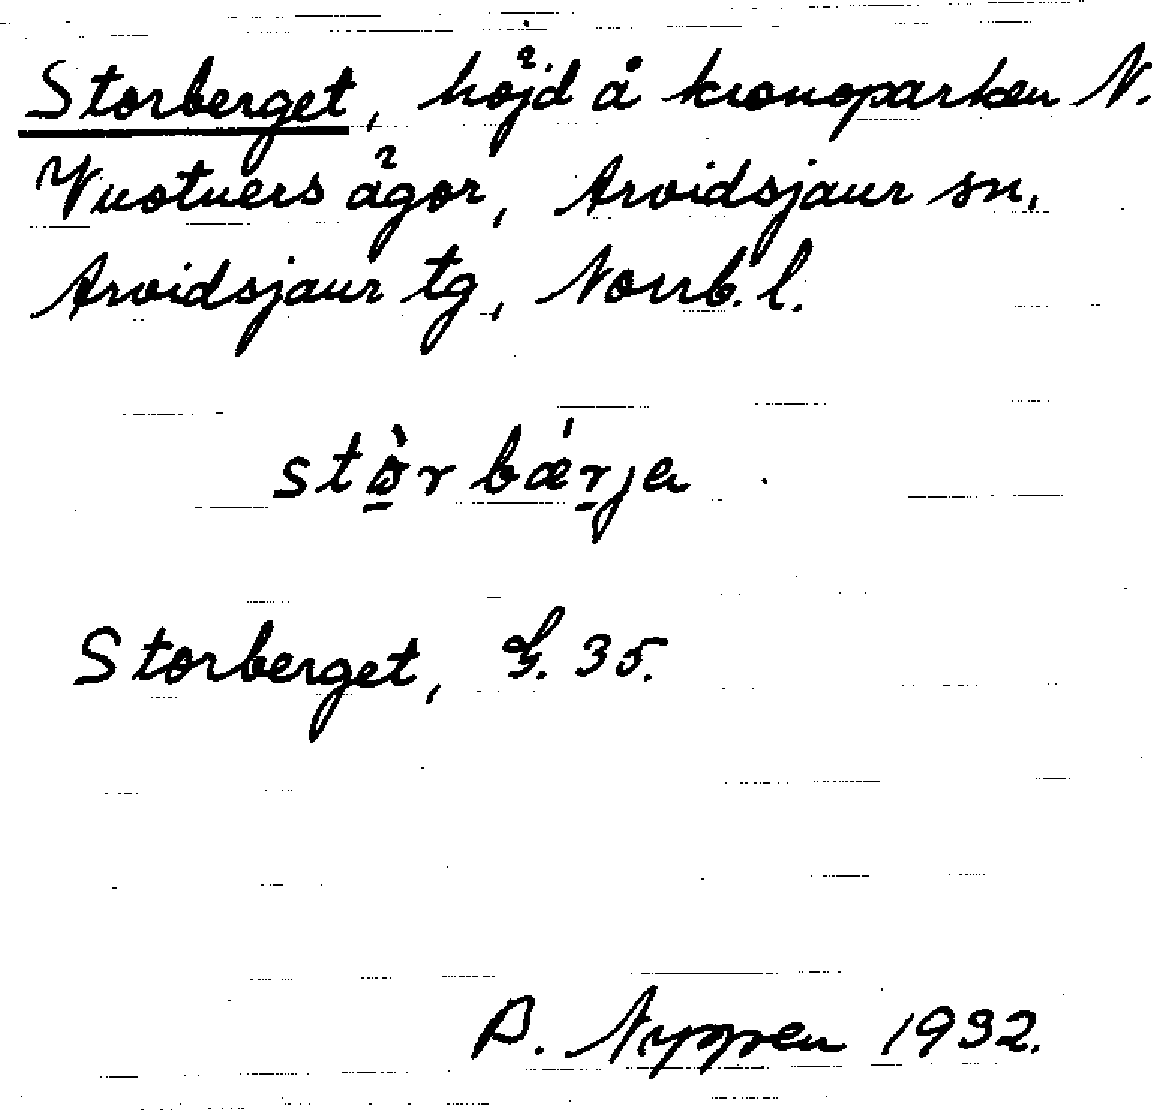 Storberget, höjd å kronoparken N.
Vuotners ägor, Arvidsjaur sn.
Arvidsjaur tg, Norrb. l.
stò̱r bǽṟja
Storberget, G. 35.
1932.